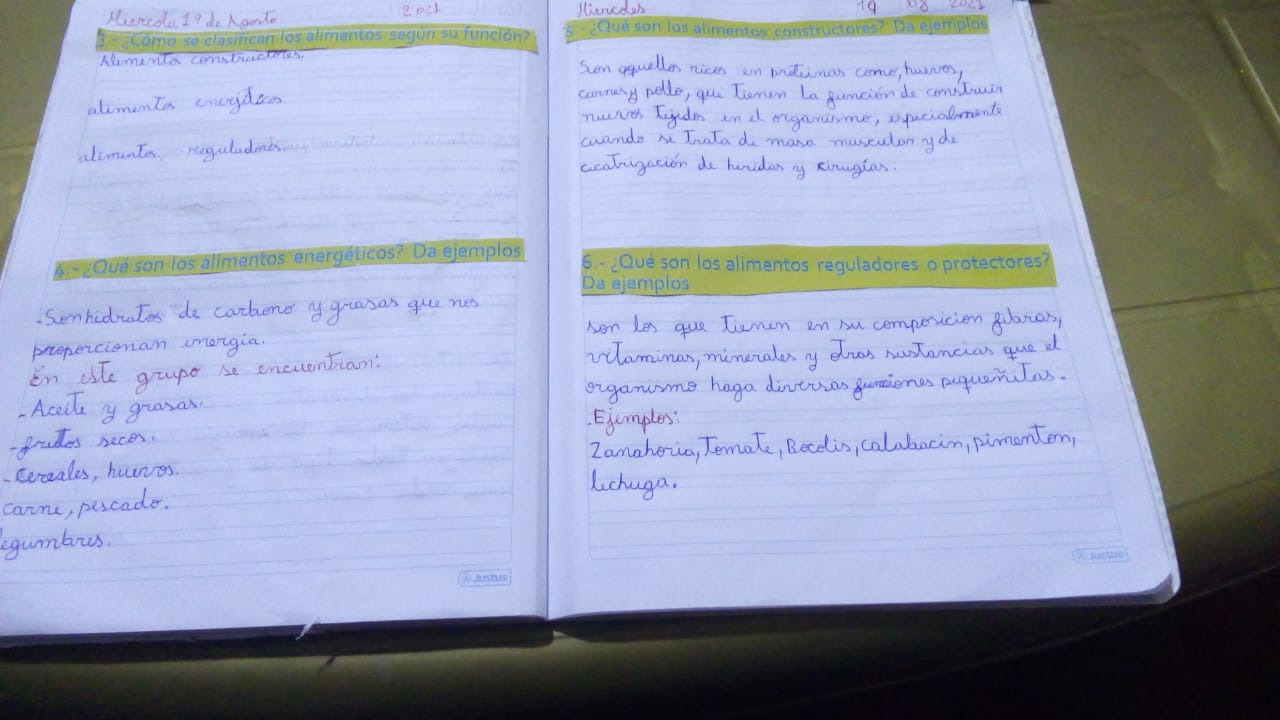 Miercoles 19 de Agosto 2021
3.- ¿Cómo se clasifican los alimentos según su función?
Alimentos constructores.
alimentos energéticos
alimentos reguladores
4.- ¿Qué son los alimentos energéticos? Da ejemplos
.Son hidratos de carbono y grasas que nos
proporcionan energia.
En este grupo se encuentran:
-Aceite y grasas.
-frutos secos.
-Cereales, huevos.
carne, pescado.
legumbres.
Justus
Miercoles 19 08 2021
5.- ¿Qué son los alimentos constructores? Da ejemplos
Son aquellos ricos en proteinas como, huevos,
carnes y pollo, que tienen la función de construir
nuevos tejidos en el organismo, especialmente
cuando se trata de masa muscular y de
cicatrización de heridas y cirugías.
6.- ¿Qué son los alimentos reguladores o protectores?
Da ejemplos
son los que tienen en su composicion fibras,
vitaminas, minerales y otras sustancias que el
organismo haga diversas funciones pequeñitas.
.Ejemplos:
Zanahoria, Tomate, Bocolis, calabacin, pimenton,
lechuga.
Justus